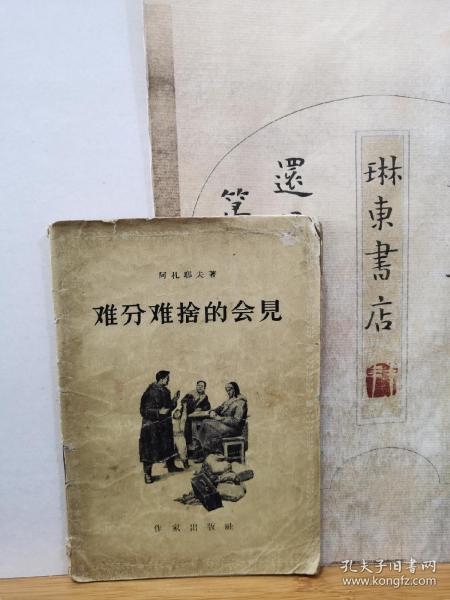 阿札耶夫著
难分难捨的会見
作家出版社
還
琳東書店
孔夫子旧书网
www.kongfz.com